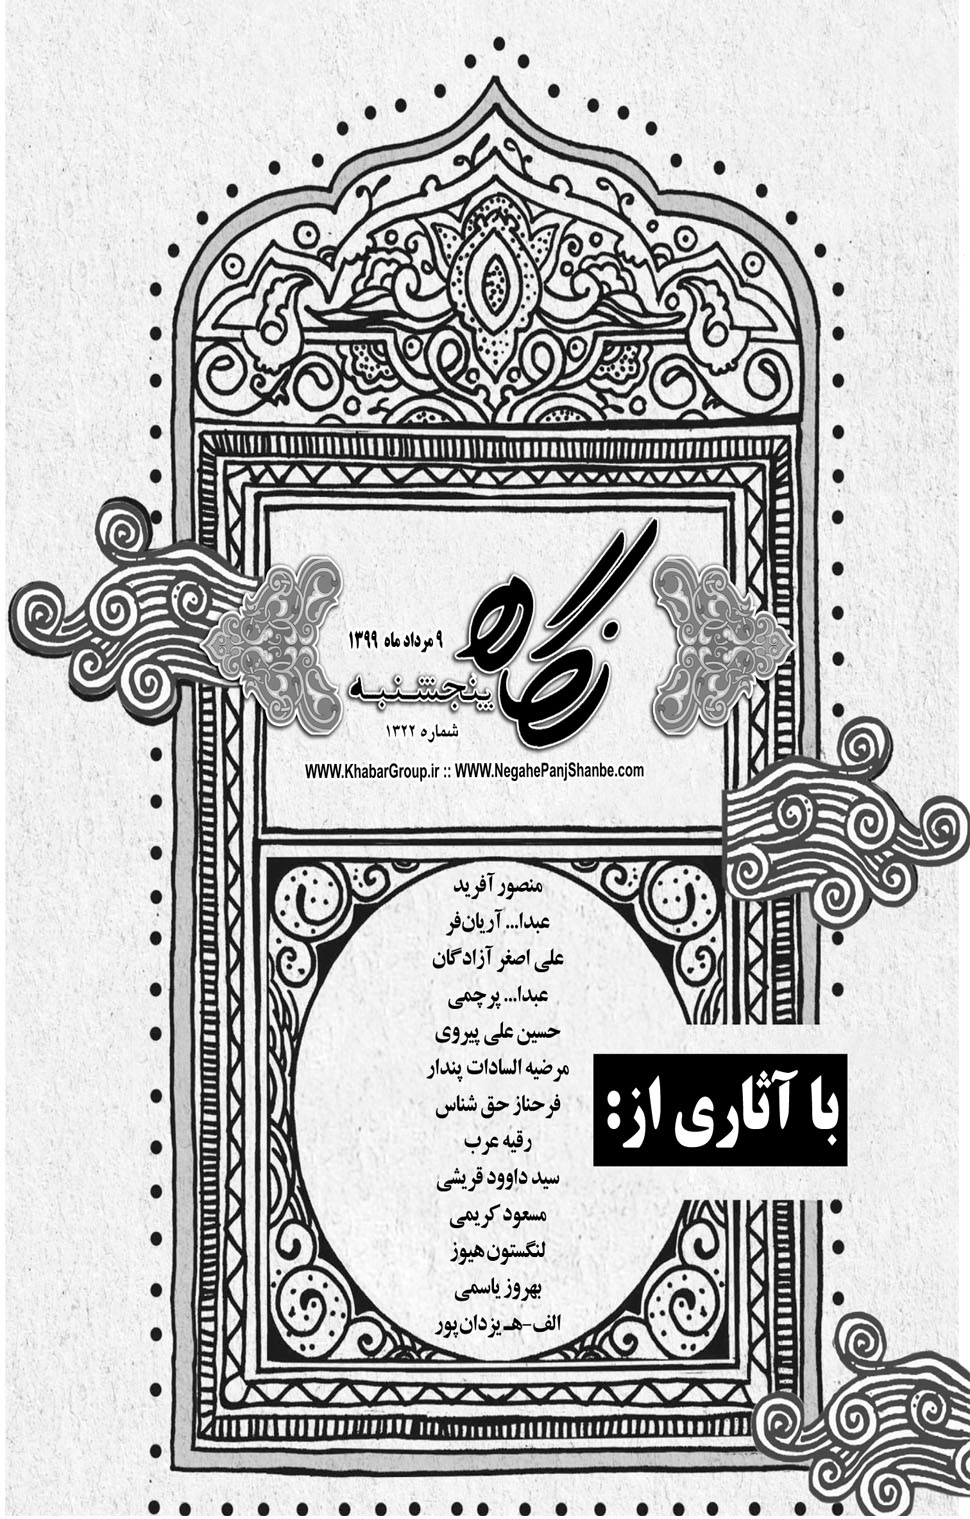 نگاه
۹ مرداد ماه ۱۳۹۹
پنجشنبه
شماره ۱۳۲۲
WWW.KhabarGroup.ir :: WWW.NegahePanjShanbe.com
با آثاری از:
منصور آفرید
عبدا... آریان‌فر
علی اصغر آزادگان
عبدا... پرچمی
حسین علی پیروی
مرضیه السادات پندار
فرحناز حق شناس
رقیه عرب
سید داوود قریشی
مسعود کریمی
لنگستون هیوز
بهروز یاسمی
الف-هـ یزدان‌پور